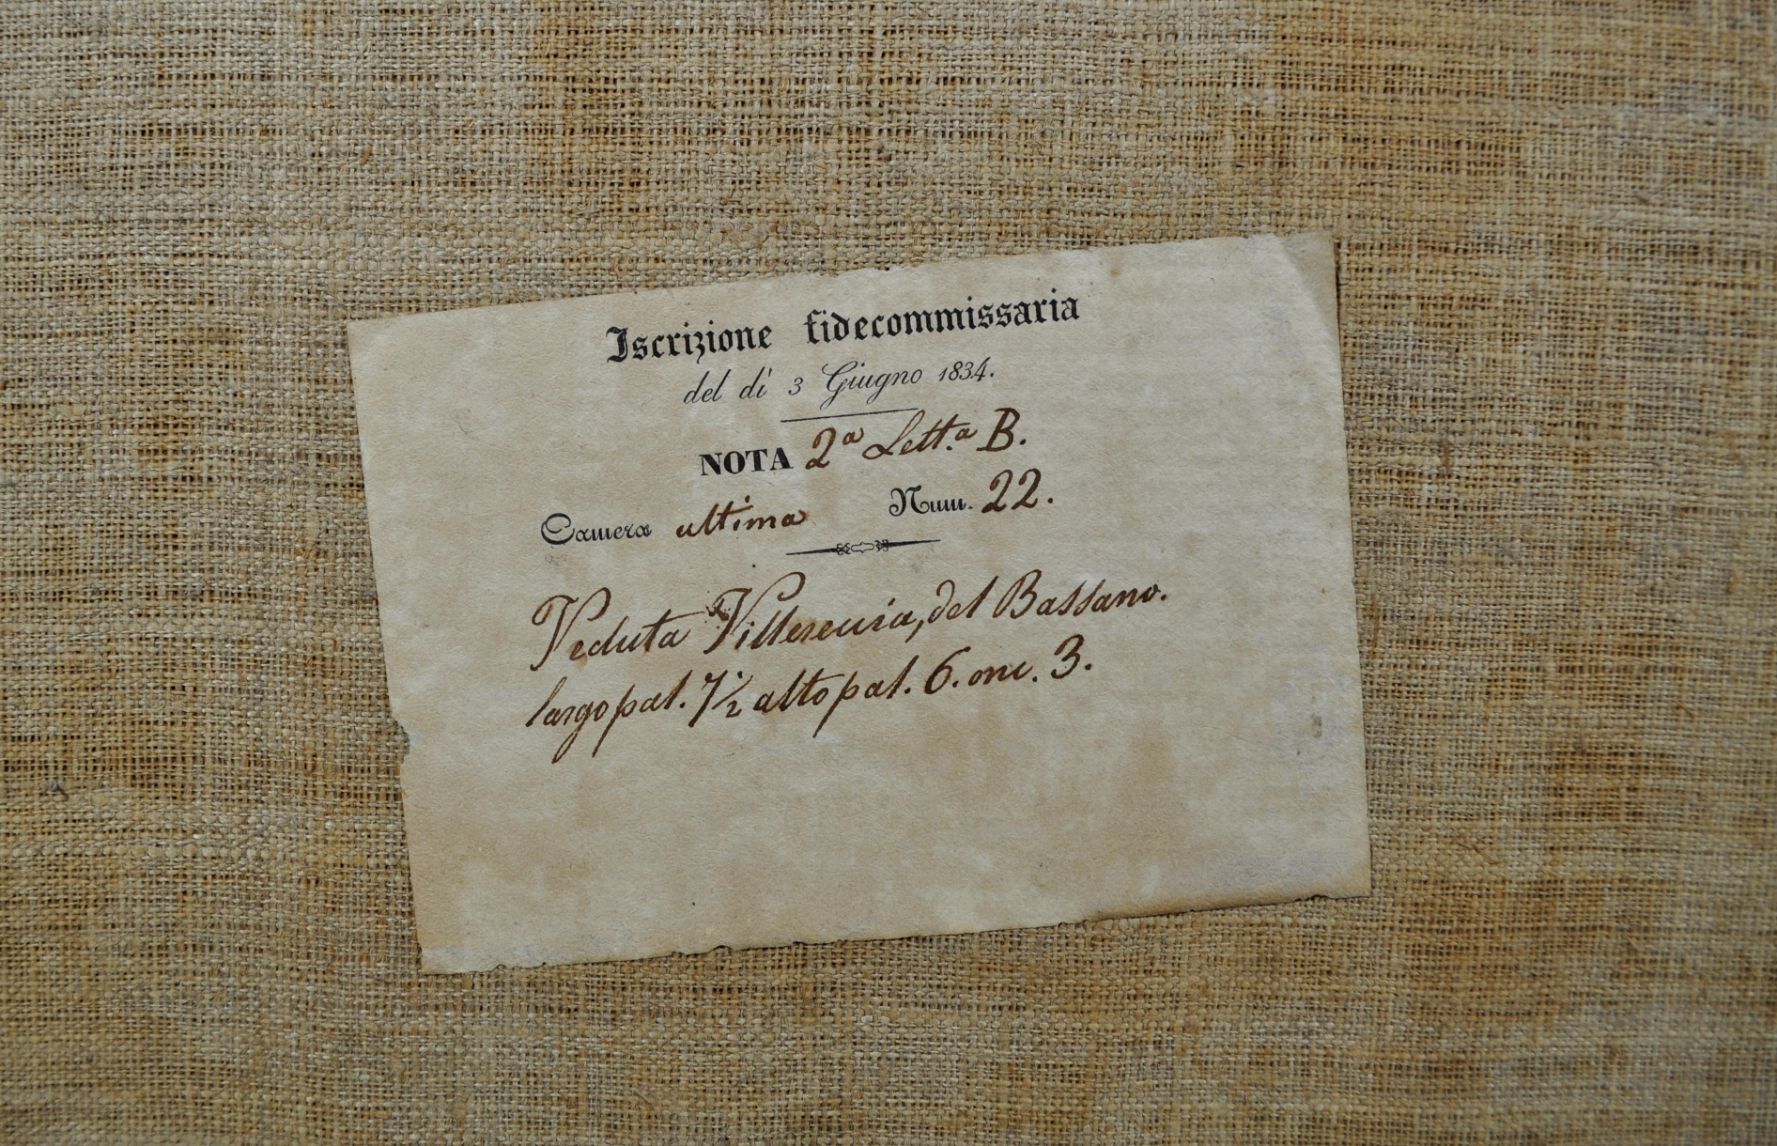 Iscrizione fidecommissaria
del di' 3 Giugno 1834.
NOTA 2ª Lett.ª B.
Camera ultima Num. 22.
Veduta Villereccia, del Bassano.
largo pal. 7½ alto pal. 6. onc. 3.